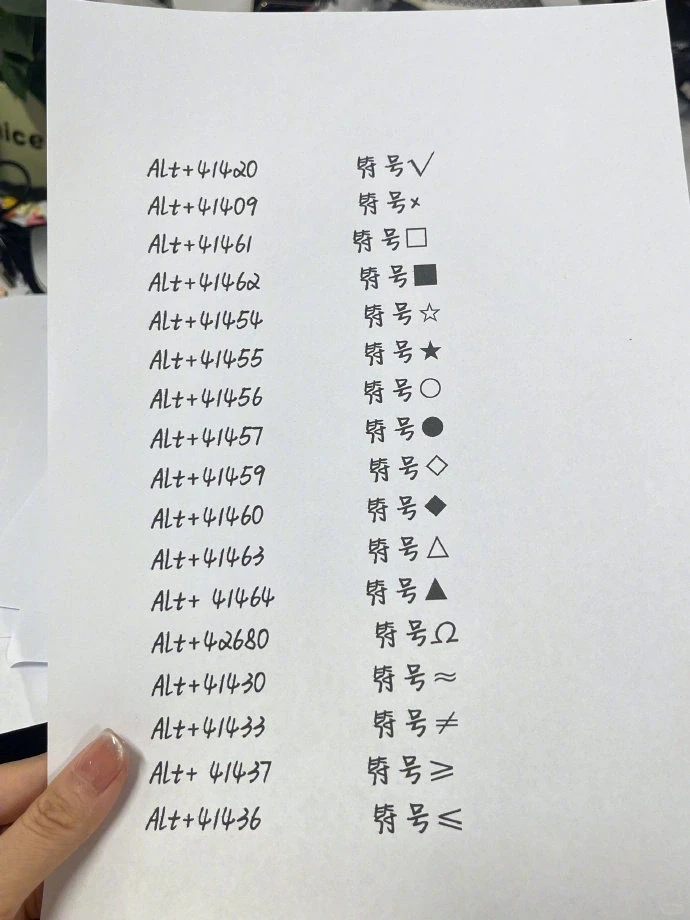 ice
Alt+41420 符号√
Alt+41409 符号×
Alt+41461 符号□
Alt+41462 符号■
Alt+41454 符号☆
Alt+41455 符号★
Alt+41456 符号○
Alt+41457 符号●
Alt+41459 符号◇
Alt+41460 符号◆
Alt+41463 符号△
Alt+ 41464 符号▲
Alt+42680 符号Ω
Alt+41430 符号≈
Alt+41433 符号≠
Alt+ 41437 符号≥
Alt+41436 符号≤